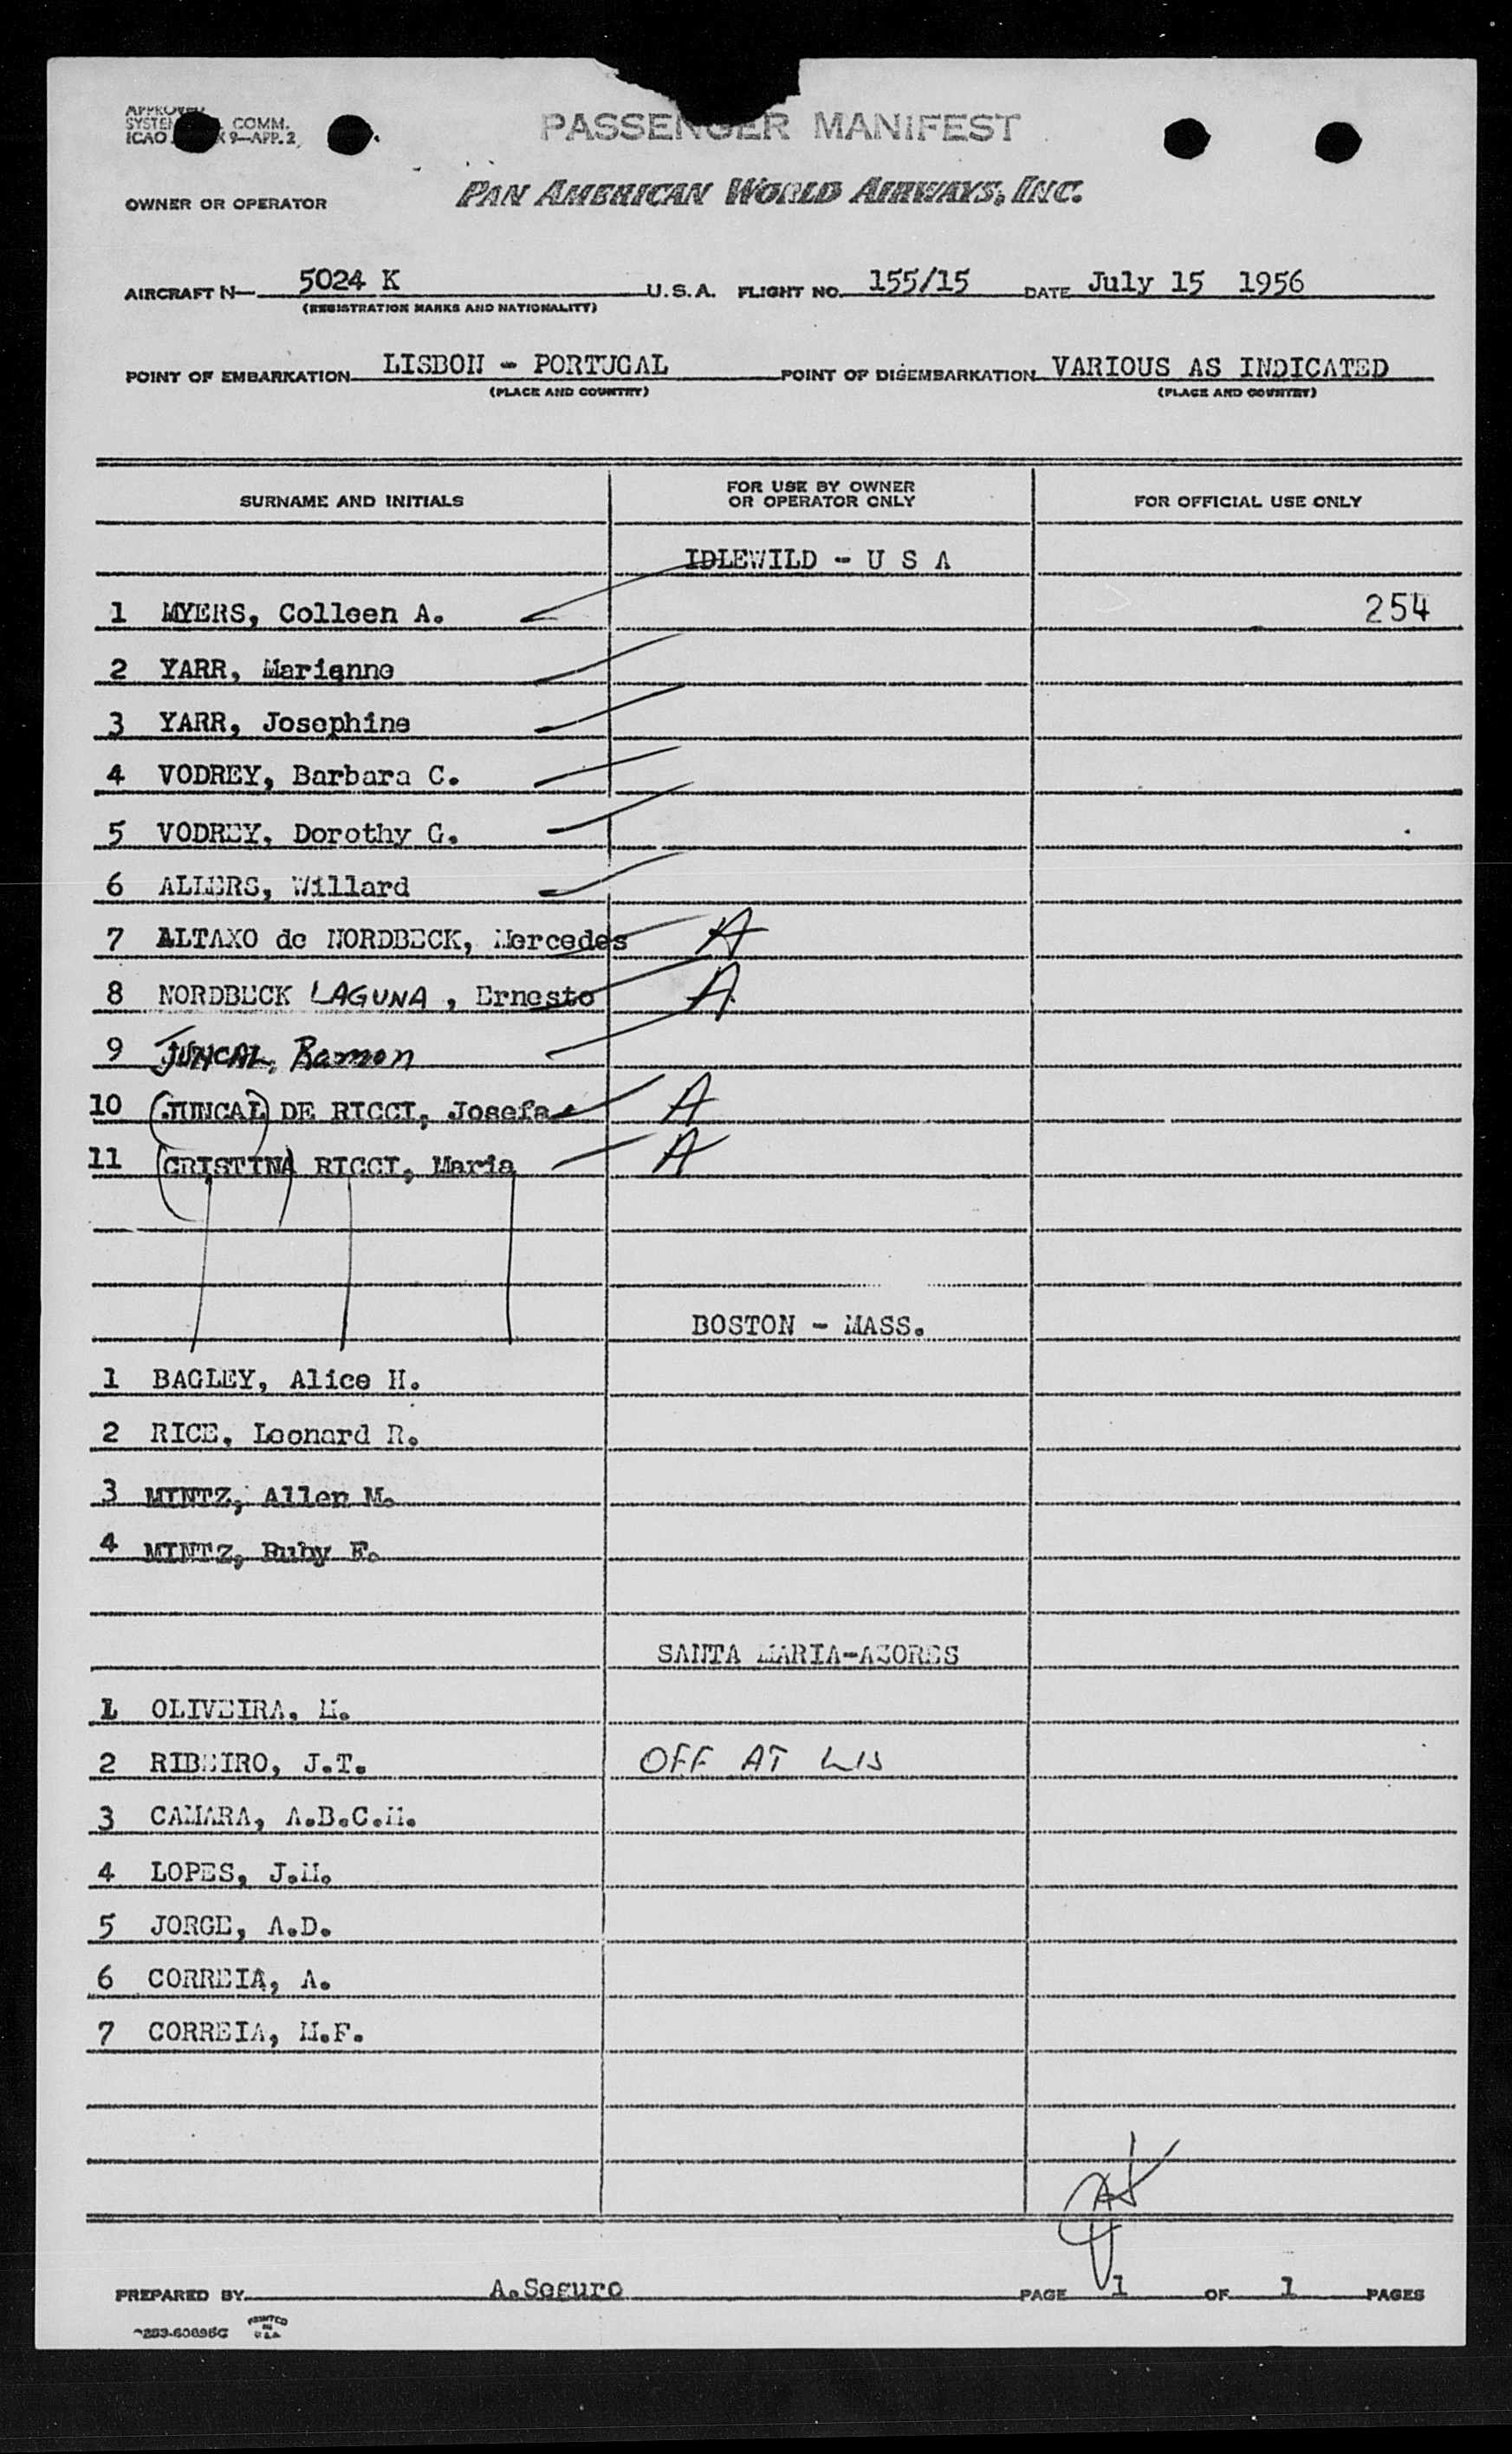 APPROVED
SYSTEM COMM.
ICAO 9—APP. 2
PASSENGER MANIFEST
OWNER OR OPERATOR PAN AMERICAN WORLD AIRWAYS, INC.
AIRCRAFT N— 5024 K U.S.A. FLIGHT NO. 155/15 DATE July 15 1956
(REGISTRATION MARKS AND NATIONALITY)
POINT OF EMBARKATION LISBON - PORTUGAL POINT OF DISEMBARKATION VARIOUS AS INDICATED
(PLACE AND COUNTRY) (PLACE AND COUNTRY)
SURNAME AND INITIALS FOR USE BY OWNER OR OPERATOR ONLY FOR OFFICIAL USE ONLY
IDLEWILD - U S A
1 MYERS, Colleen A. 254
2 YARR, Marianne
3 YARR, Josephine
4 VODREY, Barbara C.
5 VODREY, Dorothy G.
6 ALLERS, Willard
7 ALTAXO de NORDBECK, Mercedes A
8 NORDBECK LAGUNA, Ernesto A
9 JUNCAL, Ramon
10 (JUNCAL) DE RICCI, Josefa A
11 (CRISTINA) RICCI, Maria A
BOSTON - MASS.
1 BAGLEY, Alice H.
2 RICE, Leonard R.
3 MINTZ, Allen M.
4 MINTZ, Ruby F.
SANTA MARIA-AZORES
1 OLIVEIRA, M.
2 RIBEIRO, J.T. OFF AT LIS
3 CAMARA, A.B.C.M.
4 LOPES, J.M.
5 JORGE, A.D.
6 CORREIA, A.
7 CORREIA, M.F.
PREPARED BY A.Seguro PAGE 1 OF 1 PAGES
PRINTED IN U.S.A.